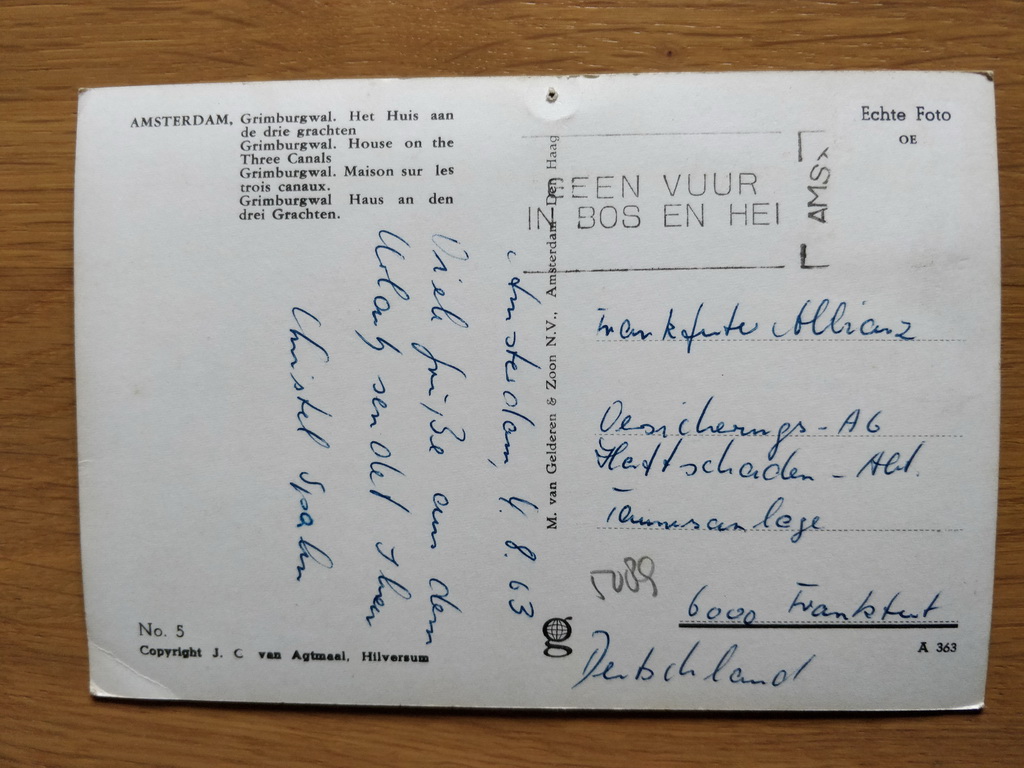 AMSTERDAM, Grimburgwal. Het Huis aan
de drie grachten
Grimburgwal. House on the
Three Canals
Grimburgwal. Maison sur les
trois canaux.
Grimburgwal Haus an den
drei Grachten.
Amsterdam, 4. 8. 63
Viele Grüße aus dem
Urlaub sendet Ihnen
Christel Spahn
No. 5
Copyright J. C van Agtmaal, Hilversum
M. van Gelderen & Zoon N.V., Amsterdam-Den Haag
GEEN VUUR
IN BOS EN HEI
AMS
Echte Foto
OE
Frankfurter Allianz
Versicherungs-AG
Haftschaden-Abt.
Taunusanlage
5089
6000 Frankfurt
Deutschland
A 363